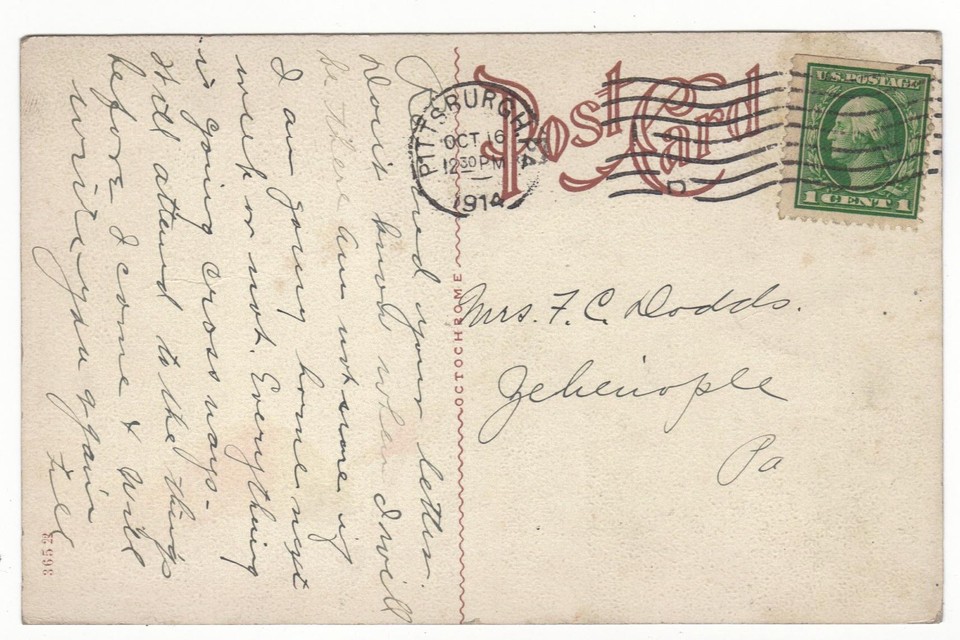 Received your letter.
Don't know when I will
be there am not sure if
I am going home next
week or not. Everything
is going cross ways -
Will attend to the things
before I come & will
write you again
3652
OCTOCHROME
Post Card
PITTSBURGH, PA
OCT 16
12 30 PM
1914
D
U.S. POSTAGE
1 CENT 1
Mrs. F. C. Dodds.
Zelienople
Pa